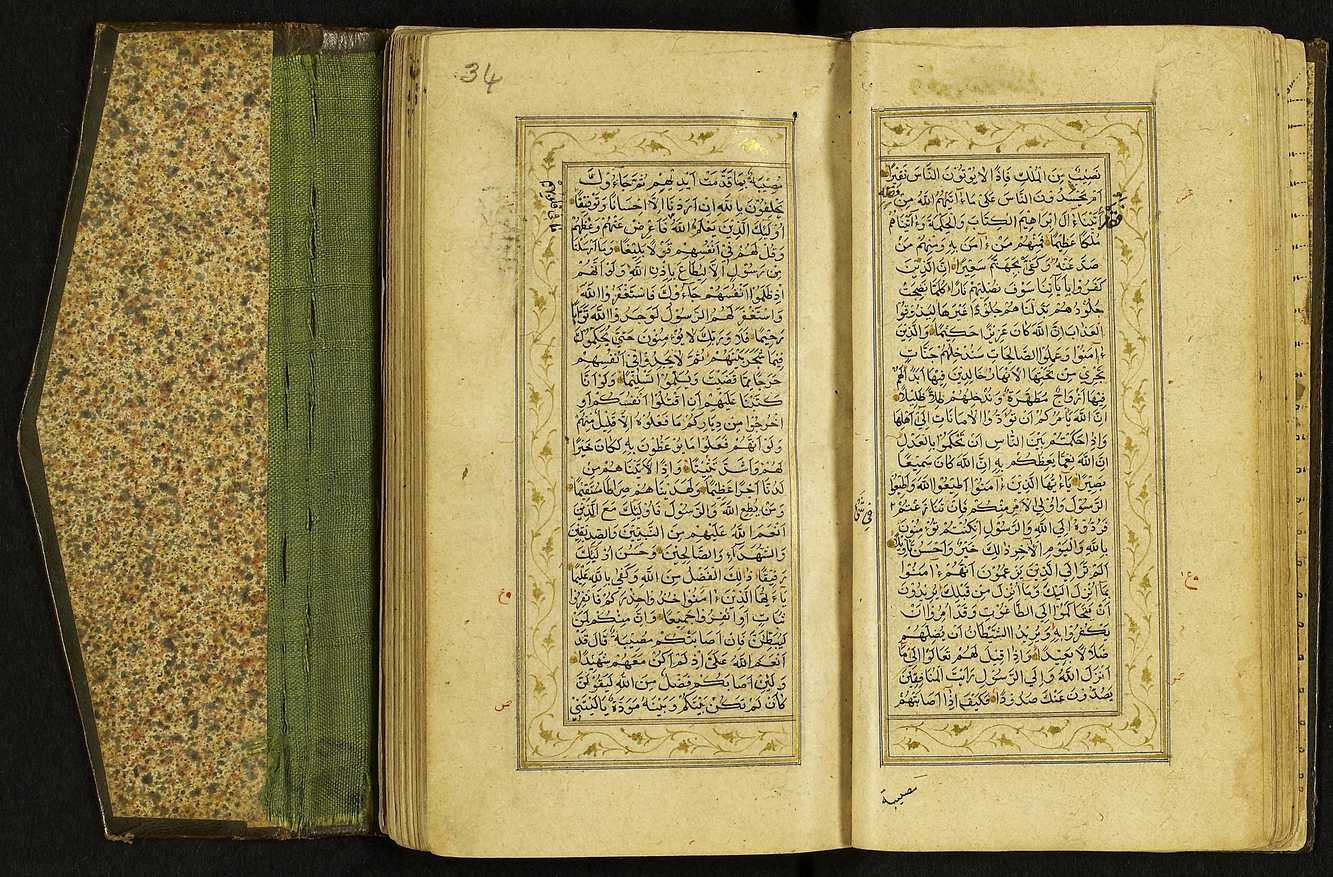 نَصِيبٌ مِنَ الْمُلْكِ فَاِذًا لَا يُؤْتُونَ النَّاسَ نَقِيرًا
اَمْ يَحْسُدُونَ النَّاسَ عَلَى مَاءَاتَيهُمُ اللهُ مِنْ فَضْلِهِ
فَقَدْ اٰتَيْنَاءَالَ اِبْرَاهِيمَ الْكِتَابَ وَالْحِكْمَةَ وَءَاتَيْنَاهُمْ
مُلْكًا عَظِيمًا فَمِنْهُمْ مَنْ ءَامَنَ بِهِ وَمِنْهُمْ مَنْ
صَدَّ عَنْهُ وَكَفَى بِجَهَنَّمَ سَعِيرًا اِنَّ الَّذِينَ
كَفَرُوا بِاٰيَاتِنَا سَوْفَ نُصْلِيهِمْ نَارًا كُلَّمَا نَضِجَتْ
جُلُودُهُمْ بَدَّلْنَاهُمْ جُلُودًا غَيْرَهَا لِيَذُوقُوا
الْعَذَابَ اِنَّ اللهَ كَانَ عَزِيزًا حَكِيمًا وَالَّذِينَ
ءَامَنُوا وَعَمِلُوا الصَّالِحَاتِ سَنُدْخِلُهُمْ جَنَّاتٍ
تَجْرِي مِنْ تَحْتِهَا الْاَنْهَارُ خَالِدِينَ فِيهَا اَبَدًا لَهُمْ
فِيهَا اَزْوَاجٌ مُطَهَّرَةٌ وَنُدْخِلُهُمْ ظِلًّا ظَلِيلًا
اِنَّ اللهَ يَاْمُرُكُمْ اَنْ تُؤَدُّوا الْاَمَانَاتِ اِلَى اَهْلِهَا
وَاِذَا حَكَمْتُمْ بَيْنَ النَّاسِ اَنْ تَحْكُمُوا بِالْعَدْلِ
اِنَّ اللهَ نِعِمَّا يَعِظُكُمْ بِهِ اِنَّ اللهَ كَانَ سَمِيعًا
بَصِيرًا يَاءَيُّهَا الَّذِينَ ءَامَنُوا اَطِيعُوا اللهَ وَاَطِيعُوا
الرَّسُولَ وَاُولِي الْاَمْرِ مِنْكُمْ فَاِنْ تَنَازَعْتُمْ
فِي شَيْءٍ
فَرُدُّوهُ اِلَى اللهِ وَالرَّسُولِ اِنْ كُنْتُمْ تُؤْمِنُونَ
بِاللهِ وَالْيَوْمِ الْاٰخِرِ ذٰلِكَ خَيْرٌ وَاَحْسَنُ تَاْوِيلًا
اَلَمْ تَرَ اِلَى الَّذِينَ يَزْعُمُونَ اَنَّهُمْ ءَامَنُوا
بِمَا اُنْزِلَ اِلَيْكَ وَمَا اُنْزِلَ مِنْ قَبْلِكَ يُرِيدُونَ
اَنْ يَتَحَاكَمُوا اِلَى الطَّاغُوتِ وَقَدْ اُمِرُوا اَنْ
يَكْفُرُوا بِهِ وَيُرِيدُ الشَّيْطَانُ اَنْ يُضِلَّهُمْ
ضَلَالًا بَعِيدًا وَاِذَا قِيلَ لَهُمْ تَعَالَوْا اِلَى مَا
اَنْزَلَ اللهُ وَاِلَى الرَّسُولِ رَاَيْتَ الْمُنَافِقِينَ
يَصُدُّونَ عَنْكَ صُدُودًا فَكَيْفَ اِذَا اَصَابَتْهُمْ
مصيبة
34
مُصِيبَةٌ بِمَا قَدَّمَتْ اَيْدِيهِمْ ثُمَّ جَاءُوكَ
يَحْلِفُونَ بِاللهِ اِنْ اَرَدْنَا اِلَّا اِحْسَانًا وَتَوْفِيقًا
اُولٰئِكَ الَّذِينَ يَعْلَمُ اللهُ مَا فِي قُلُوبِهِمْ فَاَعْرِضْ عَنْهُمْ وَعِظْهُمْ
وَقُلْ لَهُمْ فِي اَنْفُسِهِمْ قَوْلًا بَلِيغًا وَمَا اَرْسَلْنَا
مِنْ رَسُولٍ اِلَّا لِيُطَاعَ بِاِذْنِ اللهِ وَلَوْ اَنَّهُمْ
اِذْ ظَلَمُوا اَنْفُسَهُمْ جَاءُوكَ فَاسْتَغْفَرُوا اللهَ
وَاسْتَغْفَرَ لَهُمُ الرَّسُولُ لَوَجَدُوا اللهَ تَوَّابًا
رَحِيمًا فَلَا وَرَبِّكَ لَا يُؤْمِنُونَ حَتَّى يُحَكِّمُوكَ
فِيمَا شَجَرَ بَيْنَهُمْ ثُمَّ لَا يَجِدُوا فِي اَنْفُسِهِمْ
حَرَجًا مِمَّا قَضَيْتَ وَيُسَلِّمُوا تَسْلِيمًا وَلَوْ اَنَّا
كَتَبْنَا عَلَيْهِمْ اَنِ اقْتُلُوا اَنْفُسَكُمْ اَوِ
اخْرُجُوا مِنْ دِيَارِكُمْ مَا فَعَلُوهُ اِلَّا قَلِيلٌ مِنْهُمْ
وَلَوْ اَنَّهُمْ فَعَلُوا مَا يُوعَظُونَ بِهِ لَكَانَ خَيْرًا
لَهُمْ وَاَشَدَّ تَثْبِيتًا وَاِذًا لَاٰتَيْنَاهُمْ مِنْ
لَدُنَّا اَجْرًا عَظِيمًا وَلَهَدَيْنَاهُمْ صِرَاطًا مُسْتَقِيمًا
وَمَنْ يُطِعِ اللهَ وَالرَّسُولَ فَاُولٰئِكَ مَعَ الَّذِينَ
اَنْعَمَ اللهُ عَلَيْهِمْ مِنَ النَّبِيِّينَ وَالصِّدِّيقِينَ
وَالشُّهَدَاءِ وَالصَّالِحِينَ وَحَسُنَ اُولٰئِكَ
رَفِيقًا ذٰلِكَ الْفَضْلُ مِنَ اللهِ وَكَفَى بِاللهِ عَلِيمًا
يَاءَيُّهَا الَّذِينَ ءَامَنُوا خُذُوا حِذْرَكُمْ فَانْفِرُوا
ثُبَاتٍ اَوِ انْفِرُوا جَمِيعًا وَاِنَّ مِنْكُمْ لَمَنْ
لَيُبَطِّئَنَّ فَاِنْ اَصَابَتْكُمْ مُصِيبَةٌ قَالَ قَدْ
اَنْعَمَ اللهُ عَلَيَّ اِذْ لَمْ اَكُنْ مَعَهُمْ شَهِيدًا
وَلَئِنْ اَصَابَكُمْ فَضْلٌ مِنَ اللهِ لَيَقُولَنَّ
كَاَنْ لَمْ تَكُنْ بَيْنَكُمْ وَبَيْنَهُ مَوَدَّةٌ يَالَيْتَنِي